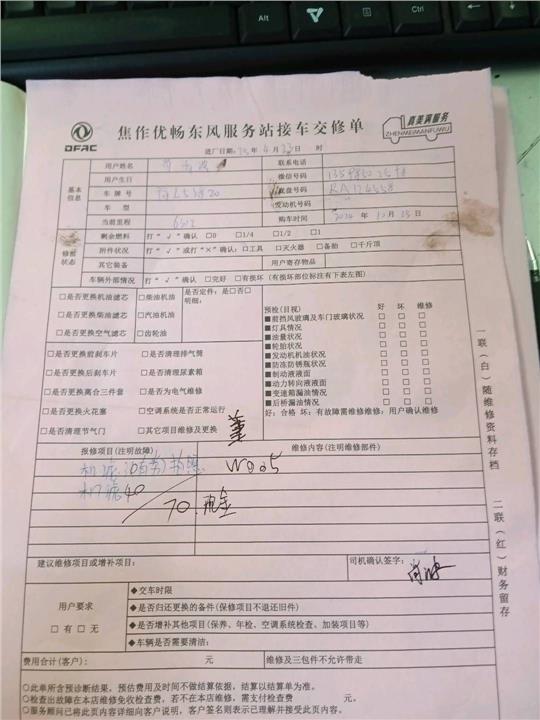 Alt
Ctrl
DFAC
焦作优畅东风服务站接车交修单
真美满服务
ZHENMEIMANFUWU
进厂日期: 25年 4月 23日 时
基本信息
用户姓名
联系电话
用户生日
微信号码
车牌号
底盘号码
车 型
发动机号
当前里程
购车时间 2024 年 12月 25日
修前状态
剩余燃料 打“√”确认 □0 □1/4 □1/2 □1
附件状况 打“√”或打“×”确认:□工具 □灭火器 □备胎 □千斤顶
其它装备
用户寄存物品
车辆外部情况 打“√”确认 □完好 □有损坏 (有损坏部位标注有下表左图)
□是否更换机油滤芯 □柴油机油
□是否更换柴油滤芯 □汽油机油
□是否更换空气滤芯 □齿轮油
是否定件:是□否□
明细:
□是否更换前刹车片 □是否清理排气筒
□是否更换后刹车片 □是否清理尿素箱
□是否更换离合三件套 □是否为电气维修
□是否更换火花塞 □空调系统是否正常运行
□是否清理节气门 □其它项目维修及更换
预检(目视) 好 坏 维修
■前挡风玻璃及车门玻璃状况 □ □ □
■灯具情况 □ □ □
■油量状况 □ □ □
■轮胎状况 □ □ □
■发动机机油状况 □ □ □
■防冻防锈瓶状况 □ □ □
■制动液液面 □ □ □
■动力转向液液面 □ □ □
■变速箱漏油情况 □ □ □
■后桥漏油情况 □ □ □
好:合格 坏:有故障需维修维修:用户确认维修
报修项目(注明故障)
维修内容(注明维修部件)
W005
机滤40
70 现金
建议维修项目或增补项目:
司机确认签字:
用户要求
□ 有 □ 无
◆交车时限
◆是否归还更换的备件(保修项目不退还旧件)
◆是否增补其他项目(保养、年检、空调系统检查、加装项目等)
◆车辆是否需要清洁:
费用合计(客户): 元
维修及三包件不允许带走
○此单所含预诊断结果，预估费用及时间不做结算依据，结算以结算单为准。
○检查出故障在本店维修免收检查费，若不在本店维修，需支付检查费 元。
○服务顾问已将此页内容详细向客户说明，客户签名则表示已理解并接受此页内容。
一联(白)随维修资料存档
二联(红)财务留存